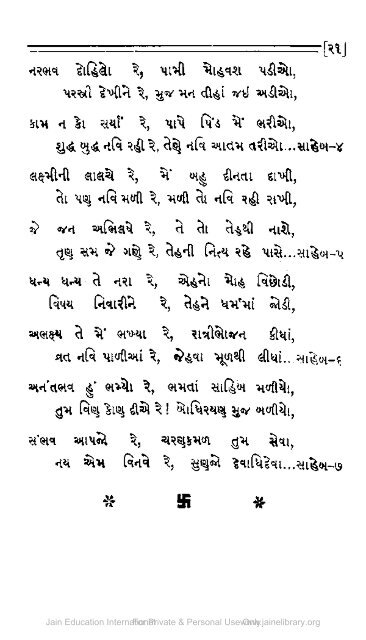 [૨૧]
નરભવ દોહિલો રે, પામી મોહવશ પડીઓ,
પરસ્ત્રી દેખીને રે, મુજ મન તીહાં જઈ અડીઓ,
કામ ન કો સર્યાં રે, પાપે પિંડ મેં ભરીઓ,
શુદ્ધ બુદ્ધ નવિ રહી રે, તેણે નવિ આતમ તરીઓ...સાહેબ-૪
લક્ષ્મીની લાલચે રે, મેં બહુ દીનતા દાખી,
તો પણ નવિ મળી રે, મળી તો નવિ રહી રાખી,
જે જન અભિલષે રે, તે તો તેહથી નાશે,
તૃણ સમ જે ગણે રે, તેહની નિત્ય રહે પાસે...સાહેબ-૫
ધન્ય ધન્ય તે નરા રે, એહનો મોહ વિછોડી,
વિષય નિવારીને રે, તેહને ધર્મમાં જોડી,
અભક્ષ્ય તે મેં ભખ્યા રે, રાત્રીભોજન કીધાં,
વ્રત નવિ પાળીઆં રે, જેહવા મૂળથી લીધાં...સાહેબ-૬
અનંતભવ હું ભમ્યો રે, ભમતાં સાહિબ મળીયો,
તુમ વિણુ કોણ દીએ રે! બોધિરયણ મુજ બળીયો,
સંભવ આપજો રે, ચરણકમળ તુમ સેવા,
નય એમ વિનવે રે, સુણજો દેવાધિદેવા...સાહેબ-૭
* 卐 *
Jain Education International For Private & Personal Use Only www.jainelibrary.org